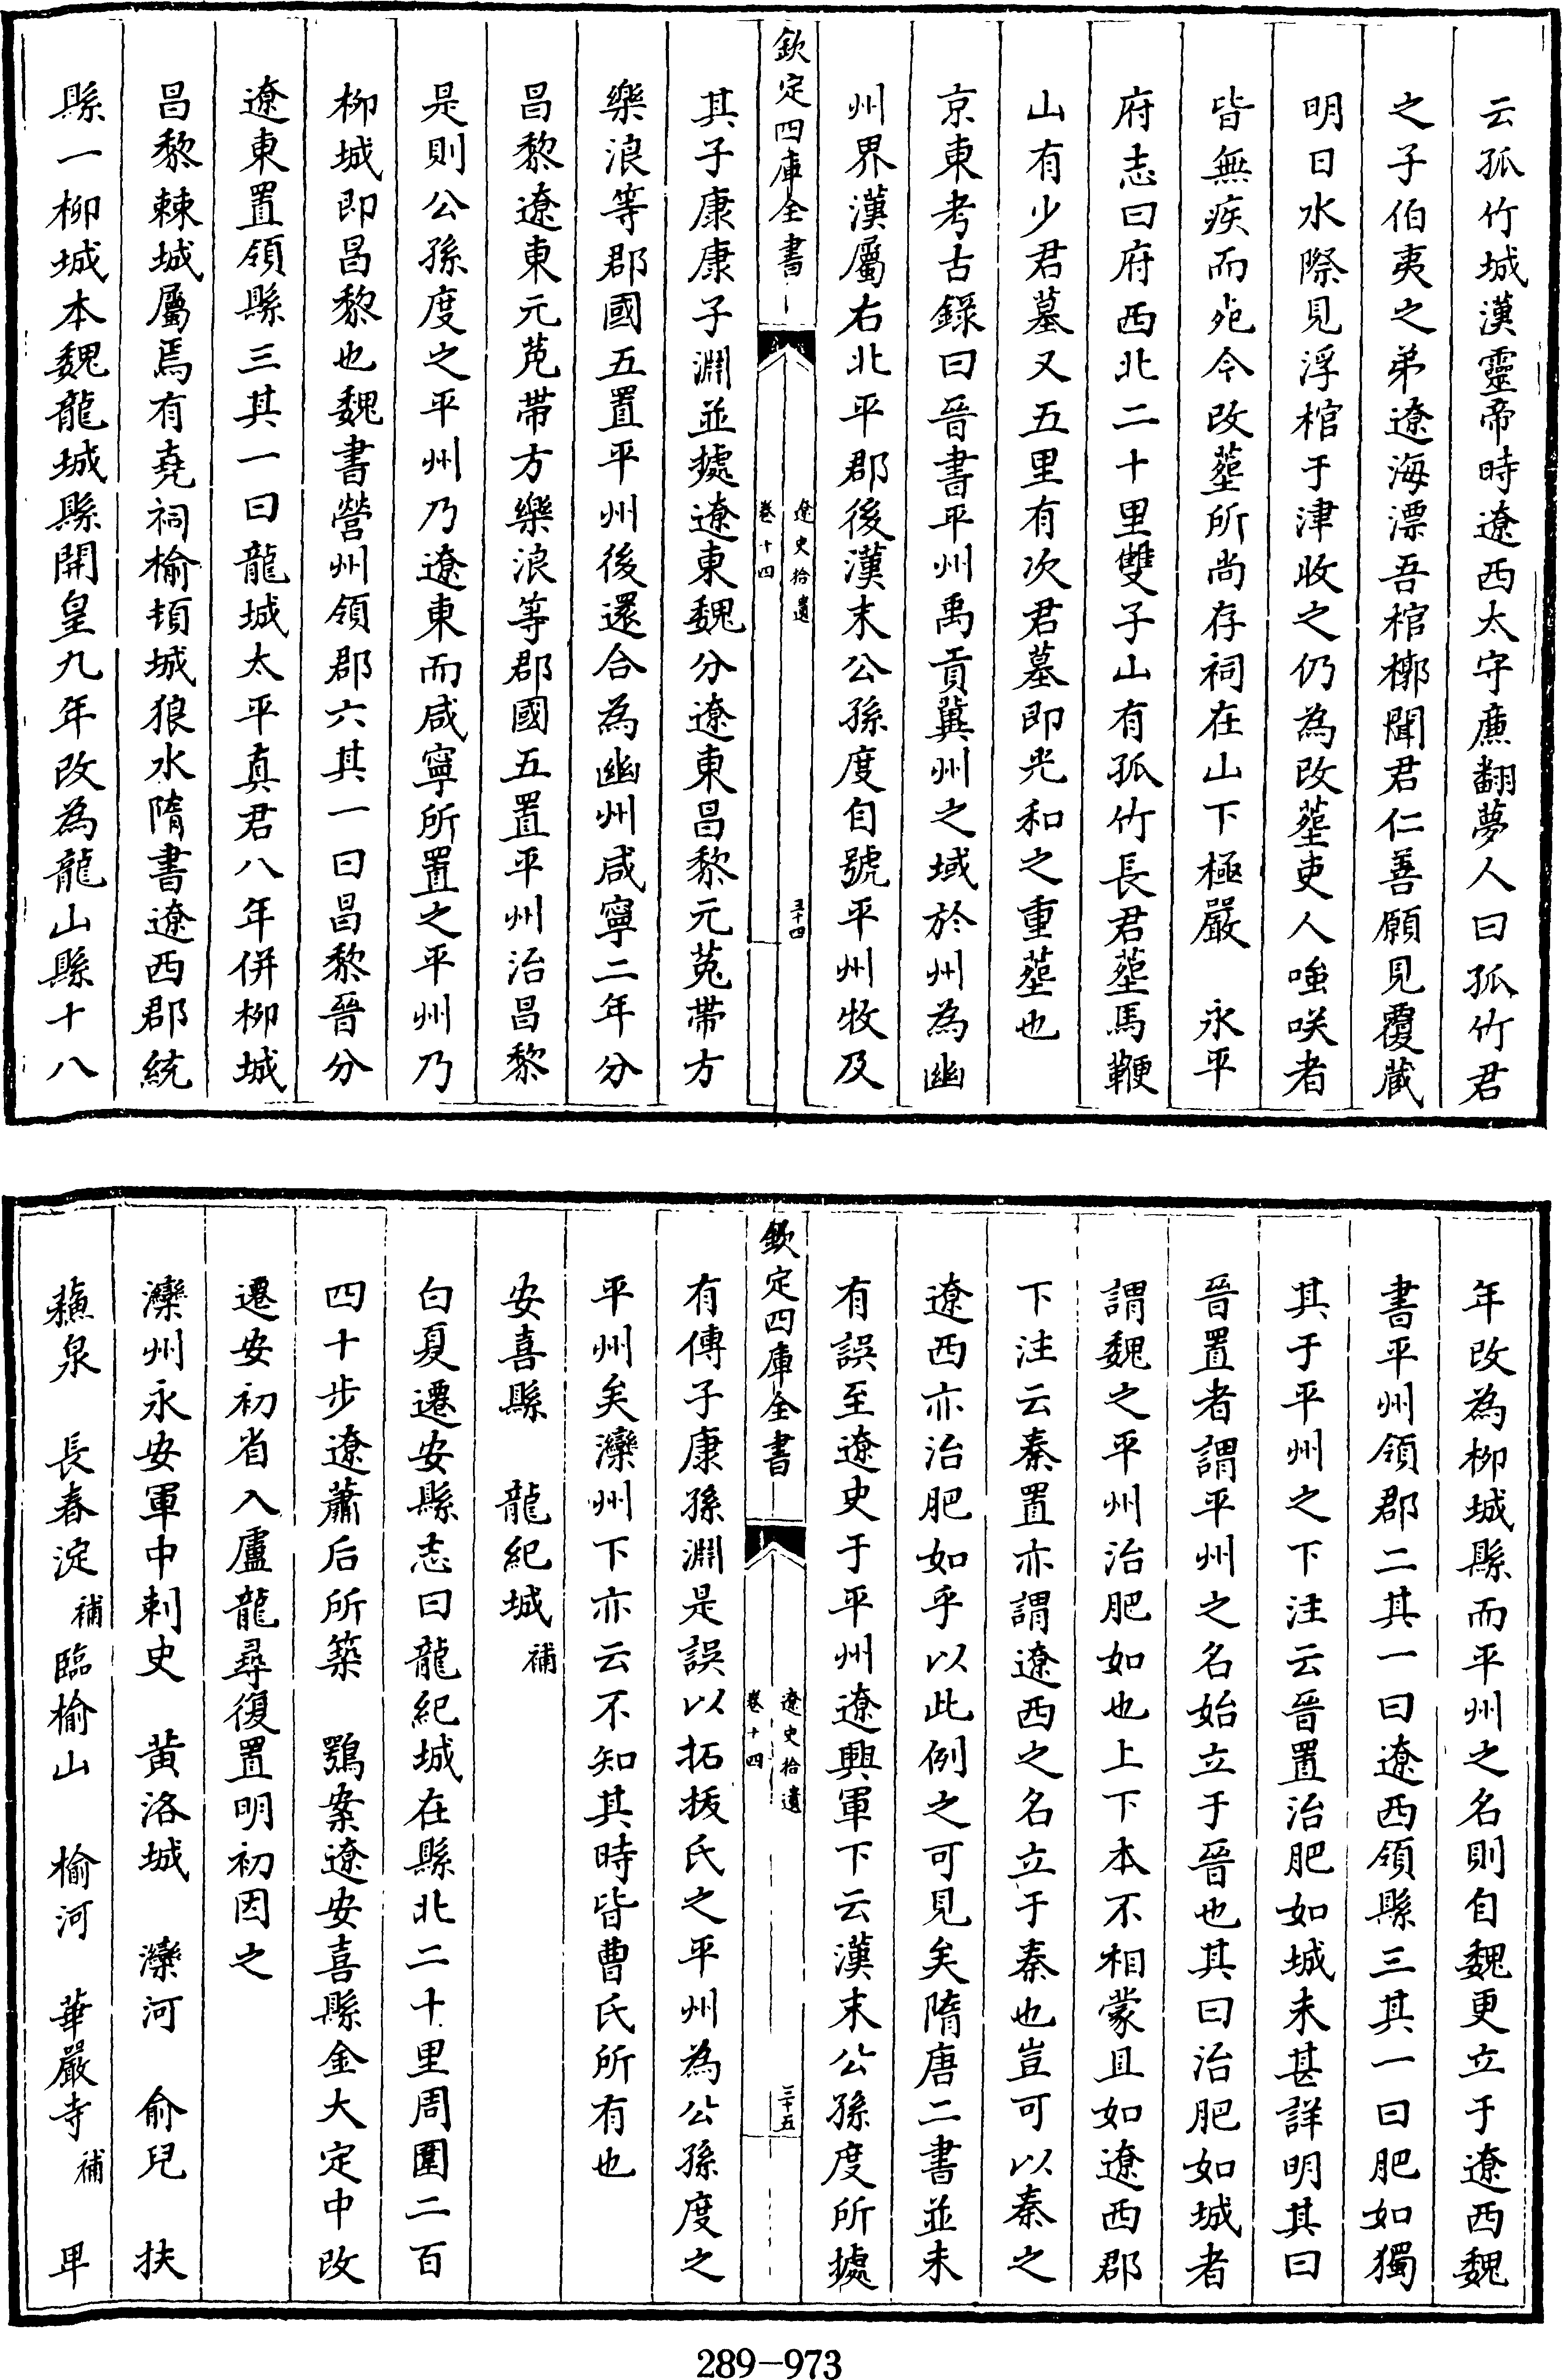 云孤竹城漢靈帝時遼西太守廉翻夢人曰孤竹君
之子伯夷之弟遼海漂吾棺槨聞君仁善願見覆藏
明日水際見浮棺于津收之仍為改塟吏人嗤咲者
皆無疾而死今改塟所尚存祠在山下極嚴　永平
府志曰府西北二十里雙子山有孤竹長君塟馬鞭
山有少君墓又五里有次君墓即光和之重塟也
京東考古錄曰晉書平州禹貢冀州之域於州為幽
州界漢屬右北平郡後漢末公孫度自號平州牧及
欽定四庫全書
遼史拾遺
卷十四
三十四
其子康康子淵並㨿遼東魏分遼東昌黎元菟帶方
樂浪等郡國五置平州後還合為幽州咸寧二年分
昌黎遼東元菟帶方樂浪等郡國五置平州治昌黎
是則公孫度之平州乃遼東而咸寧所置之平州乃
柳城即昌黎也魏書營州領郡六其一曰昌黎晉分
遼東置領縣三其一曰龍城太平真君八年併柳城
昌黎棘城屬焉有堯祠榆頓城狼水隋書遼西郡統
縣一柳城本魏龍城縣開皇九年改為龍山縣十八
年改為柳城縣而平州之名則自魏更立于遼西魏
書平州領郡二其一曰遼西領縣三其一曰肥如獨
其于平州之下注云晉置治肥如城未甚詳明其曰
晉置者謂平州之名始立于晉也其曰治肥如城者
謂魏之平州治肥如也上下本不相蒙且如遼西郡
下注云秦置亦謂遼西之名立于秦也豈可以秦之
遼西亦治肥如乎以此例之可見矣隋唐二書並未
有誤至遼史于平州遼興軍下云漢末公孫度所㨿
欽定四庫全書
遼史拾遺
卷十四
三十五
有傳子康孫淵是誤以拓拔氏之平州為公孫度之
平州矣灤州下亦云不知其時皆曹氏所有也
安喜縣　龍紀城補
白夏遷安縣志曰龍紀城在縣北二十里周圍二百
四十步遼蕭后所築　鶚案遼安喜縣金大定中改
遷安初省入盧龍尋復置明初因之
灤州永安軍中刺史　黃洛城　灤河　俞兒　扶
蘇泉　長春淀補臨榆山　榆河　華嚴寺補　早
289-973